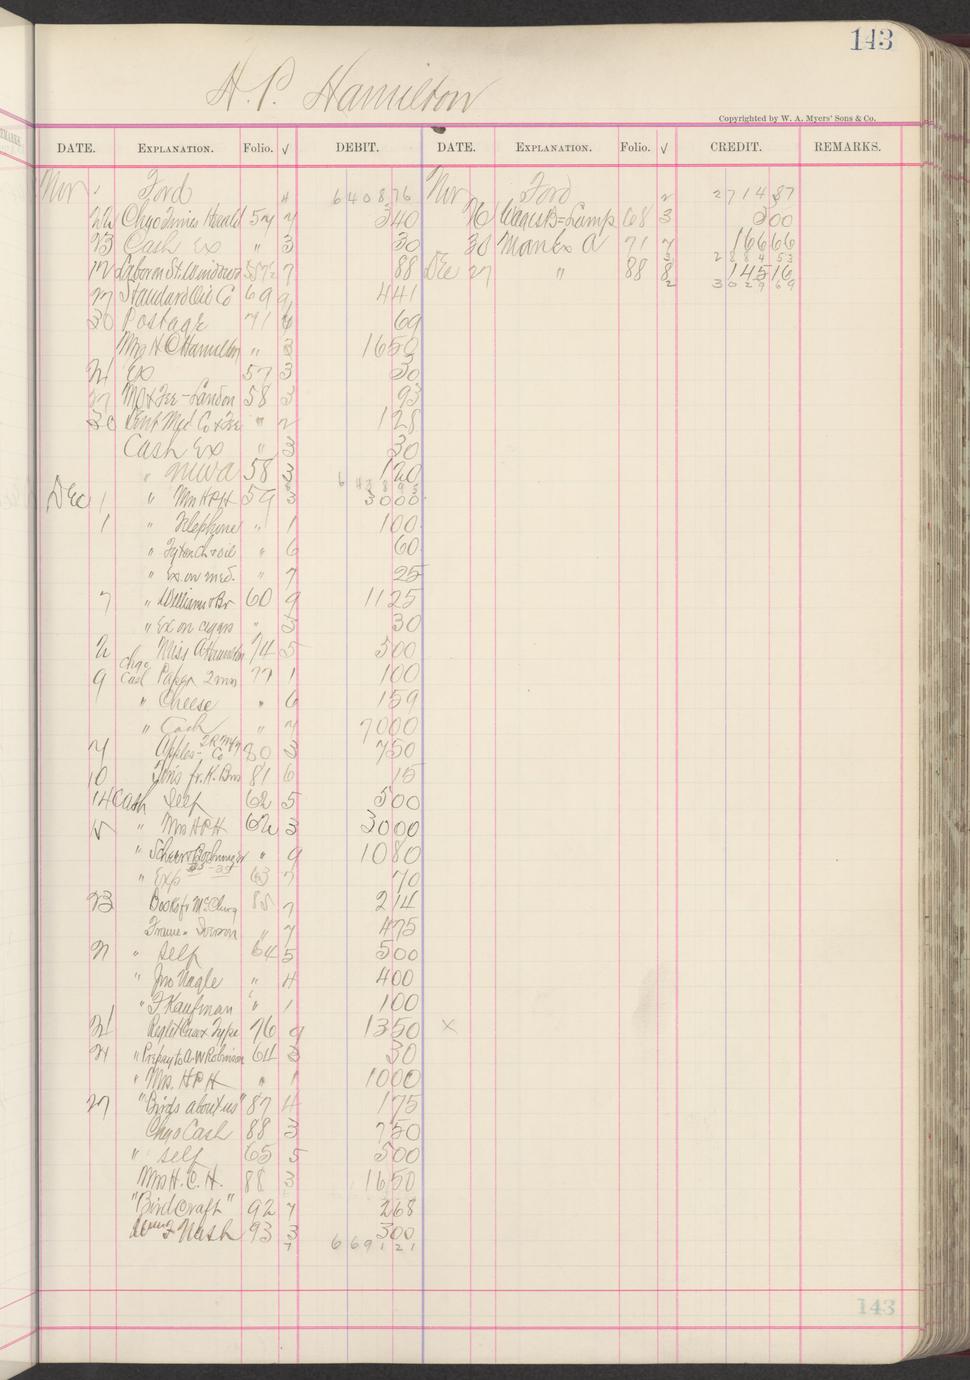 143
H. P. Hamilton
Copyrighted by W. A. Myers' Sons & Co.
DATE. EXPLANATION. Folio. √ DEBIT. DATE. EXPLANATION. Folio. √ CREDIT. REMARKS.
Nov 1 Ford 4 640876 Nov Ford 2 271487
22 Chgo Times Herald 54 7 340 26 Wages B= Lamp 68 3 300
23 Cash Ex " 3 30 30 Man Ex a 71 7 16666
3 288453
St. Windows 7 88 Dec 27 " 88 8 14516
2 302969
27 Standard Oil Co 69 9 441
30 Postage 71 6 69
Mrs H C Hamilton " 3 1650
21 Ex 57 3 30
27 MO & Fee - Landon 58 3 93
30 Dent Med Co & Fee " 2 128
Cash Ex " 3 30
" 58 3 120
643895
Dec 1 " Mrs HPH 59 3 3000
1 " Telephone " 1 100
" oil " 6 60
" Ex on med. " 7 25
7 " William & Br 60 9 1125
" Ex on cigars " 3 30
2 Miss A Hamilton 74 5 500
9 Chgo Cash Paper 2 mos 77 1 100
" Cheese " 6 159
" Cash " 7 7000
4 Apples - Co 80 3 750
10 fr. K. Bros 81 6 15
14 Cash Self 62 5 500
15 " Mrs HPH 62 3 3000
" " 9 1080
" Exp 63 7 70
23 Books fr McClurg 85 7 214
Frame " 7 475
21 " Self 64 5 500
" Jno Nagle " 4 400
" F Kaufman " 1 100
21 Reglet Case & Type 76 9 1350 ×
21 " Prepay to A. W Robinson 64 3 30
" Mrs. HPH " 1 1000
27 "Birds about us" 87 4 175
Chgo Cash 88 3 750
" self 65 5 500
Mrs H. C. H. 88 3 1650
"Birdcraft" 92 7 268
Nash 93 3 300
7 669121
143